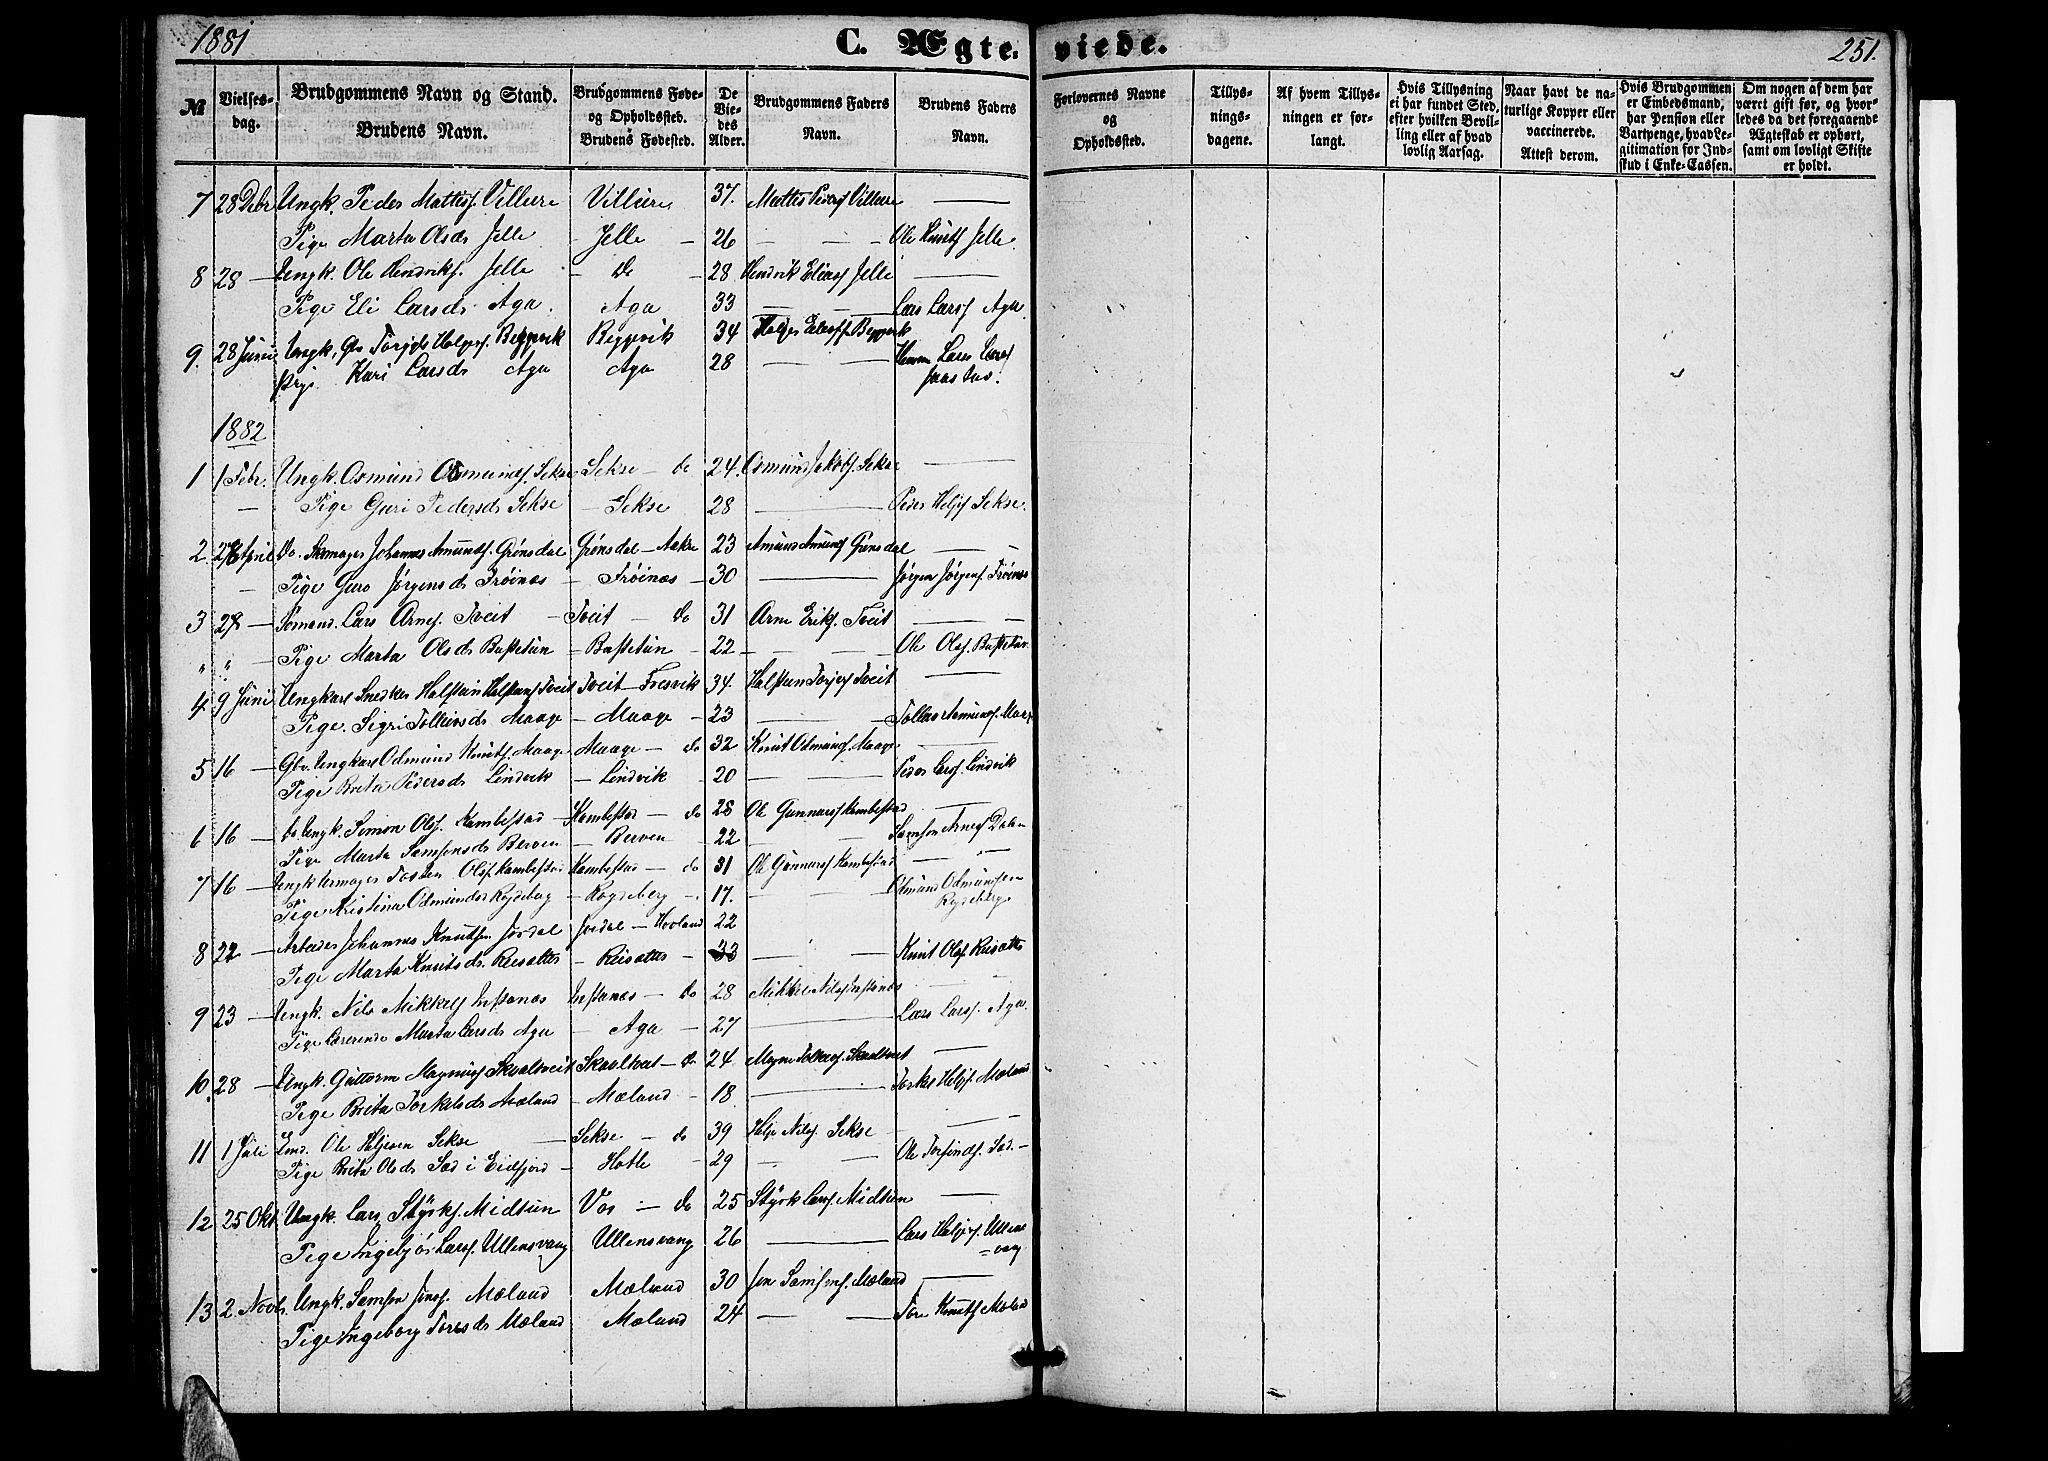 1881 C. Ægteviede. 251.
№ Vielsesdag. Brudgommens Navn og Stand. Brudens Navn. Brudgommens Føde- og Opholdssted. Brudens Fødested. De Viedes Alder. Brudgommens Faders Navn. Brudens Faders Navn. Forlovernes Navne og Opholdssted. Tillysningsdagene. Af hvem Tillysningen er forlangt. Hvis Tillysning ei har fundet Sted, efter hvilken Bevilling eller af hvad lovlig Aarsag. Naar havt de naturlige Kopper eller vaccinerede. Attest derom. Hvis Brudgommen er Embedsmand, har Pension eller Vartpenge, hvad Legitimation for Indskud i Enke-Cassen. Om nogen af dem har været gift før, og hvorledes da det foregaaende Ægteskab er ophørt, samt om lovligt Skifte er holdt.
7 28 Debr Ungk. Peder Mattisf. Villure Villure 37. Mattes Peders Villure —
Pige Marta Olsds Jelle – Jelle – 26 — — Ole Knutsf Jelle.
8 28 — Ungk. Ole Hendriksf. Jelle – Do – 28 Hendrik Eliasf Jelle —
Pige Eli Larsds Aga. Aga 33 — — Lars Larsf Aga.
9. 28 Juni Ungk, Gbr Helgesf. Beggevik Beggevik 34
Kari Larsds Aga Aga 28 — — Lars Larsf
1882
1 1 Febr. Ungk. Osmund Osmundsf. Sekse Sekse — do 24. Osmund Jakobsf. Sekse —
— Pige Guri Pedersds Sekse – Sekse 28 — Peder Heljesf Sekse.
2. 28 April Do. Skomager Johannes Amundsf. Grønsdal Grønsdal – Aakre 23 Amund Amundsf Grønsdal —
– Pige Guro Jørgensds Frøinæs – Frøinæs – 30 — Jørgen Jørgensf. Frøinæs
3 28 — Sømand. Lars Arnesf. Tveit – Tveit — do 31 Arne Eriksf. Tveit — —
" " — Pige Marta Olsds Buttetun – Buttetun – 22 – — Ole Olsf. Buttetun
4 9 Juni Ungkarl Snedker Halstein Halsteinsf Tveit Tveit – Fresvik 34. Halstein Torjersf Tveit —
Pige. Sigri Tolleivsds Maage – Maage – 23 —
5 16 — Gbr. Ungkarl Odmund Knutsf. Maage Maage — do 32 Knut Odmundsf. Maage —
Pige Brita Pedersds Lindvik – Lindvik 20 — — Peder Larsf. Lindvik
6 16 — do Ungk. Simon Olsf. Kambestad – Kambestad – do 28 Ole Gunnarsf Kambestad —
Pige Marta Samsonsds Berven – Berven – 22 — — Samson Arnesf
7 16 — Ungk Torsten Olsf Kambestad Kambestad – do 31 Ole Gunnarsf Kambestad — —
Pige Kristina Odmundsds Rogdeberg – Rogdeberg – 17. — — Odmund Odmundsen Rogdeberg
8 22 — Arbeider Johannes Knutsen Jordal Jordal – Hovland 22
Pige Marta Knutsds. Reisæter – Reisæter – 33 — — Knut Olsf. Reisæter
9 23 — Ungk. Nils Mikkelsf Instanæs Instanæs – do 28 Mikkel Nilsf Instanæs —
Pige Lærerinde Marta Larsds Aga – Aga – 27 — Lars Larsf. Aga.
10. 28 — Ungk. Guttorm Magnusf Skaaltveit Skaaltveit – do 24. —
Pige Brita Torkelsds Mæland – Mæland – 18 — Torkel Heljesf. Mæland
11 1 Juli Emd. Ole Heljesen Sekse — Sekse – do 39 Helje Nilsf. Sekse — —
Pige Brita Olsds Sæd i Eidfjord – Hotle – 29 — — Ole Torfindsf. Sæd. –
12 25 Okt Ungk. Lars Styrksf. Midtun Vos — do 25 Styrk Larsf. Midtun —
Pige Ingebjør Larsf. Ullensvang Ullensvang 26 — Lars Heljesf. Ullensvang
13 2 Novb. Ungk. Samson Jonsf. Mæland Mæland 30 Jon Samsonsf. Mæland —
Pige Ingeborg Toresds Mæland Mæland 24 — — Tore Knutsf Mæland